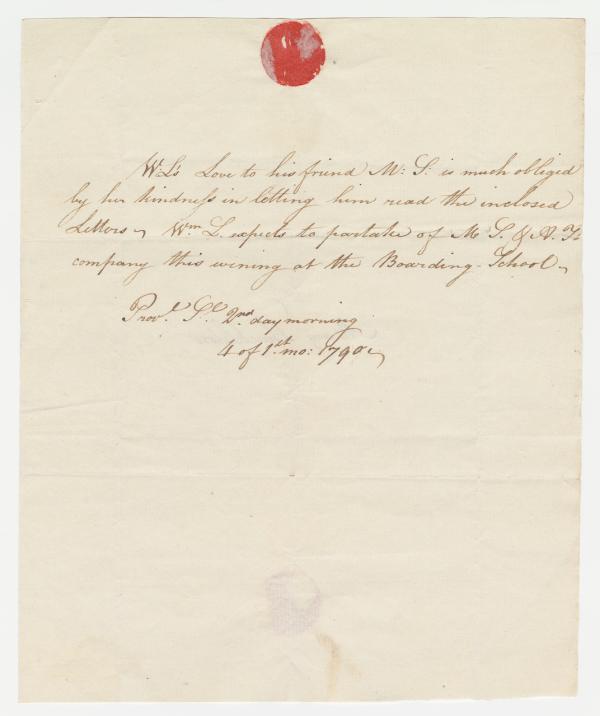 W: L's Love to his friend M: S: is much obliged
by her kindness in letting him read the inclosed
Letters Wm L. expects to partake of M S. & A.
company this evening at the Boarding-School
Prov.e 2nd day morning
4 of 1st mo: 1790